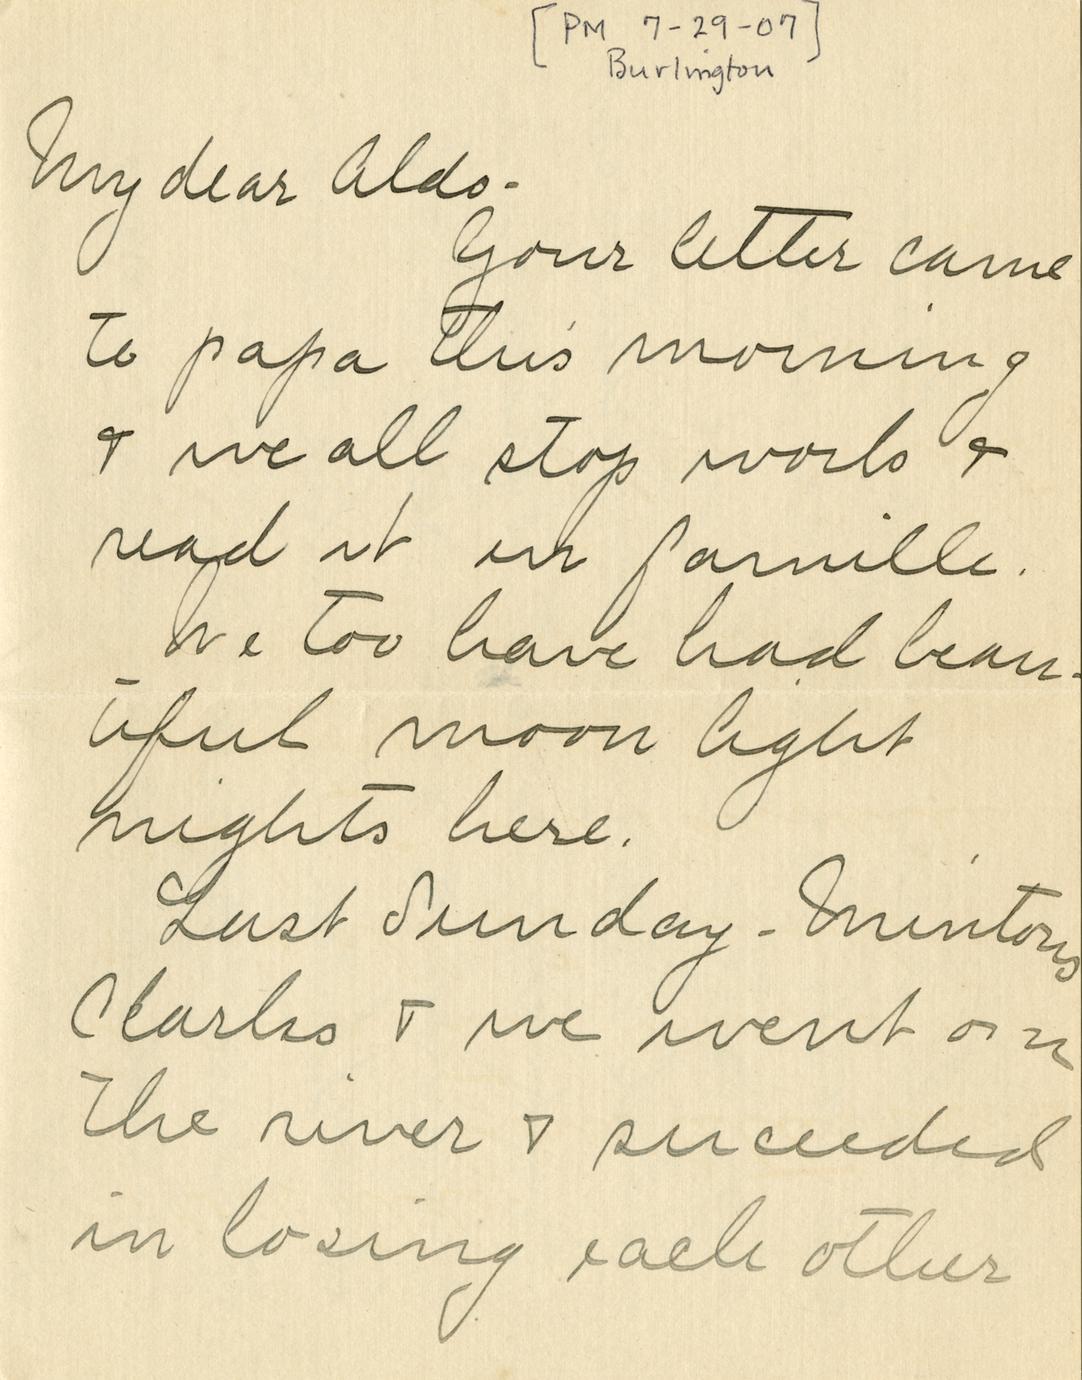 [PM 7-29-07]
Burlington
My dear Aldo-
Your letter came
to papa this morning
& we all stop work &
read it in famille.
We too have had beau-
tiful moon light
nights here.
Last Sunday - Mintons
Clarks & we went on
the river & succeeded
in losing each other